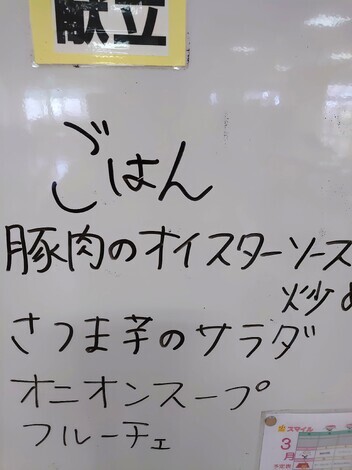 献立
ごはん
豚肉のオイスターソース
炒め
さつま芋のサラダ
オニオンスープ
フルーチェ
スマイル
3
月
予定表